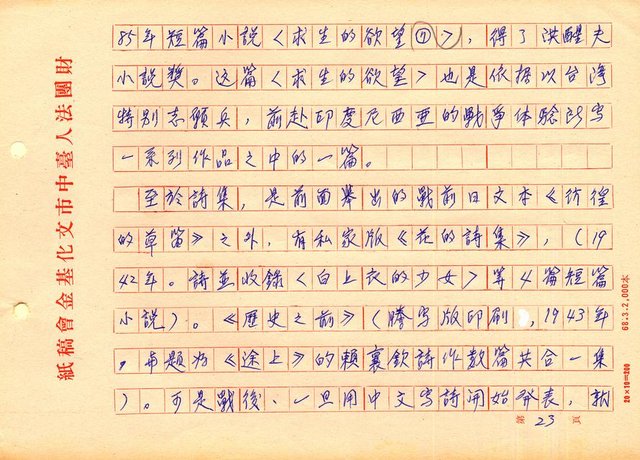 85年短篇小說〈求生的欲望⑦〉，得了洪醒夫
小說獎。这篇〈求生的欲望〉也是依据以台灣
特別志願兵，前赴印度尼西亜的戰爭体驗所写
一系列作品之中的一篇。
至於詩集，是前面舉出的戰前日文本《彷徨
的草笛》之外，有私家版《花的詩集》，（19
42年。詩並收錄〈白上衣的少女〉等4篇短篇
小說）。《歷史之前》（謄写版印刷，1943年
，與題为《途上》的賴襄欽詩作数篇共合一集
）。可是戰後、一旦用中文写詩開始發表，就
第23頁
財團法人臺中市文化基金會稿紙
68.3.2,000本
20×10=200